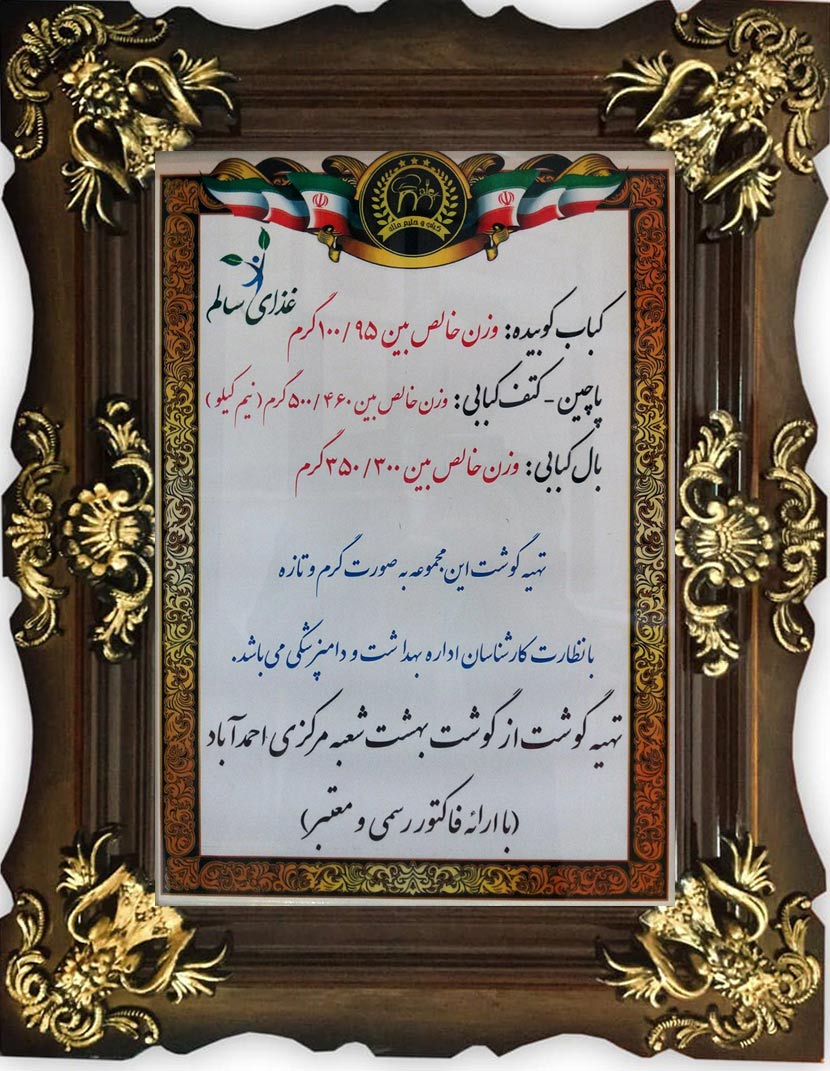 کبابی و حلیم ملل
غذای سالم
کباب کوبیده: وزن خالص بین ۹۵ / ۱۰۰ گرم
پاچین - کتف کبابی: وزن خالص بین ۴۶۰ / ۵۰۰ گرم (نیم کیلو)
بال کبابی: وزن خالص بین ۳۰۰ / ۳۵۰ گرم
تهیه گوشت این مجموعه به صورت گرم و تازه
با نظارت کارشناسان اداره بهداشت و دامپزشکی می‌باشد.
تهیه گوشت از گوشت بهشت شعبه مرکزی احمدآباد
(با ارائه فاکتور رسمی و معتبر)